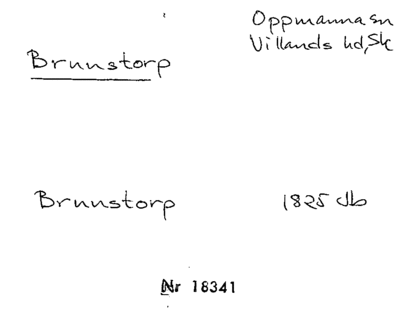 Oppmanna sn
Villands hd, Sk
Brunnstorp
Brunnstorp 1825 db
Nr 18341